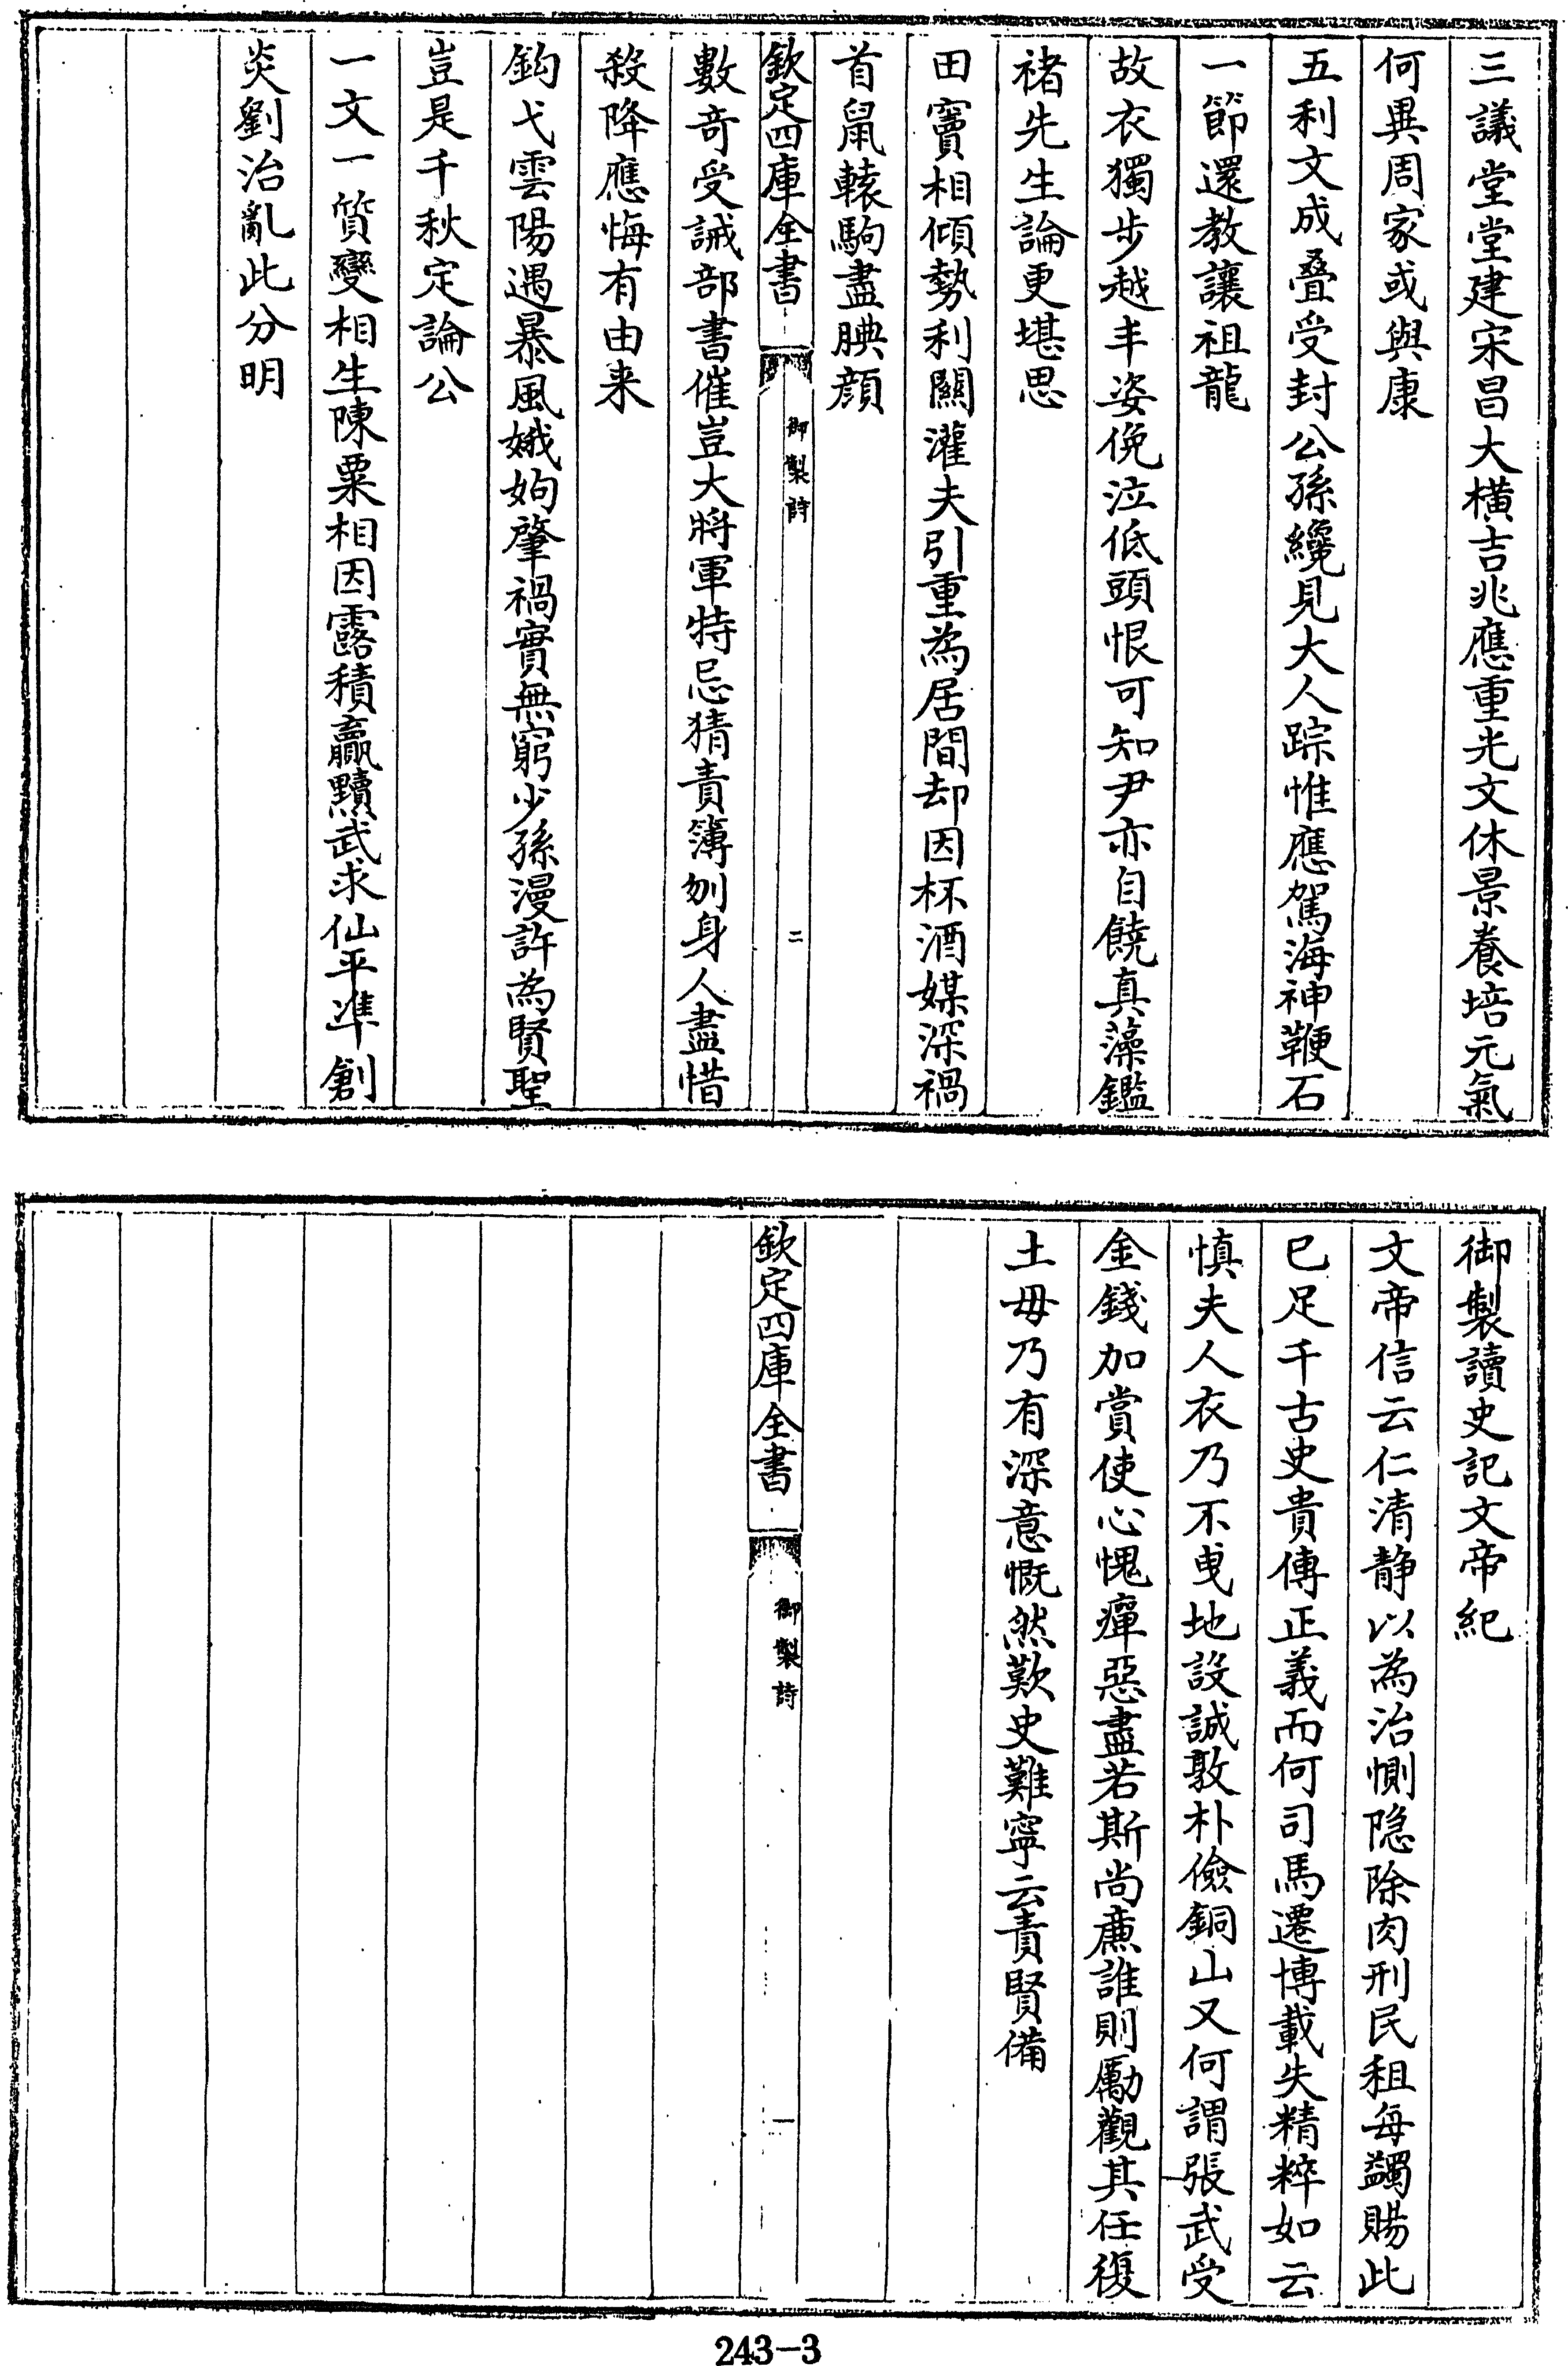 三議堂堂建宋昌大橫吉兆應重光文休景養培元氣
何異周家成與康
五利文成叠受封公孫纔見大人踪惟應駕海神鞭石
一節還教讓祖龍
故衣獨步越丰姿俛泣低頭恨可知尹亦自饒真藻鑑
褚先生論更堪思
田竇相傾勢利關灌夫引重為居間却因杯酒媒深禍
首鼠轅駒盡腆顔
欽定四庫全書
御製詩
二
數竒受誡部書催豈大將軍特忌猜責簿刎身人盡惜
殺降應悔有由来
鈎弋雲陽遇暴風娥姁肇禍實無窮少孫漫許為賢聖
豈是千秋定論公
一文一質變相生陳粟相因露積贏黷武求仙平凖創
炎劉治亂此分明
御製讀史記文帝紀
文帝信云仁清静以為治惻隐除肉刑民租每蠲賜此
已足千古史貴傳正義而何司馬遷博載失精粹如云
慎夫人衣乃不曳地設誠敦朴儉銅山又何謂張武受
金錢加賞使心愧癉惡盡若斯尚㢘誰則勵觀其任復
土毋乃有深意慨然歎史難寧云責賢備
欽定四庫全書
御製詩
一
243-3